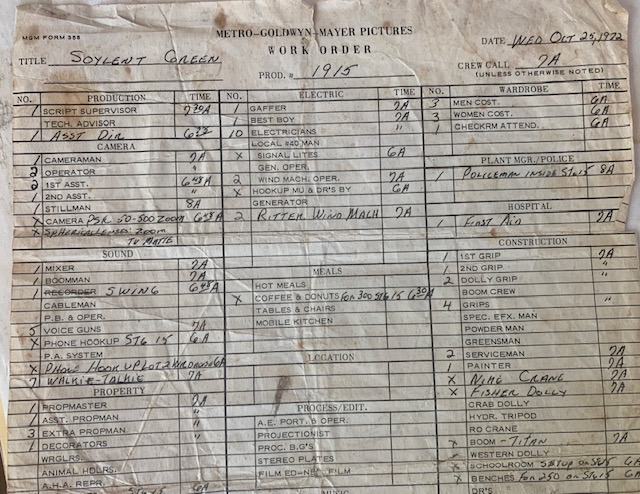 MGM FORM 388
METRO-GOLDWYN-MAYER PICTURES
WORK ORDER
TITLE SOYLENT GREEN
PROD. # 1915
DATE WED OCT 25, 1972
CREW CALL 7A
(UNLESS OTHERWISE NOTED)
NO. PRODUCTION TIME
1 SCRIPT SUPERVISOR 7 30A
TECH. ADVISOR
1 ASST DIR
CAMERA
1 CAMERAMAN 7A
2 OPERATOR "
2 1ST ASST. 6 48A
1 2ND ASST. "
1 STILLMAN 8A
X CAMERA PSR 50-500 ZOOM 6 48A
X SPHERICAL LENSES ZOOM
TO MATTE
SOUND
1 MIXER 7A
1 BOOMMAN 7A
1 RECORDER SWING 6 48A
CABLEMAN
P.B. & OPER.
5 VOICE GUNS 7A
X PHONE HOOKUP STG 15 6A
P.A. SYSTEM
X PHONE HOOK UP LOT 2 6A
7 WALKIE-TALKIE 7A
PROPERTY
1 PROPMASTER 7A
1 ASST. PROPMAN "
3 EXTRA PROPMAN "
1 DECORATORS "
WRGLRS.
ANIMAL HDLRS.
A.H.A. REPR.
STG 15 6A
NO. ELECTRIC TIME
1 GAFFER 7A
1 BEST BOY 7A
10 ELECTRICIANS "
LOCAL #40 MAN
X SIGNAL LITES 6A
GEN. OPER.
2 WIND MACH. OPER. 7A
X HOOKUP MU & DR'S BY 6A
GENERATOR
2 RITTER WIND MACH 7A
MEALS
HOT MEALS
X COFFEE & DONUTS FOR 300 STG 15 6 30A
TABLES & CHAIRS
MOBILE KITCHEN
LOCATION
PROCESS/EDIT.
A.E. PORT. & OPER.
PROJECTIONIST
PROC. B.G'S
STEREO PLATES
FILM ED-NEG. FILM
MUSIC
NO. WARDROBE TIME
3 MEN COST. 6A
3 WOMEN COST. 6A
1 CHECKRM ATTEND. 6A
PLANT MGR./POLICE
1 POLICEMAN INSIDE STG 15 8A
HOSPITAL
1 FIRST AID 7A
CONSTRUCTION
1 1ST GRIP 7A
1 2ND GRIP "
2 DOLLY GRIP "
BOOM CREW
4 GRIPS "
SPEC. EFX. MAN
POWDER MAN
GREENSMAN
2 SERVICEMAN 7A
1 PAINTER 7A
X NIKE CRANE 7A
X FISHER DOLLY 7A
CRAB DOLLY
HYDR. TRIPOD
RO CRANE
X BOOM - TITAN 7A
WESTERN DOLLY
X SCHOOLROOM SETUP ON STG 15 6A
X BENCHES FOR 250 ON STG 15 6A
DR'S